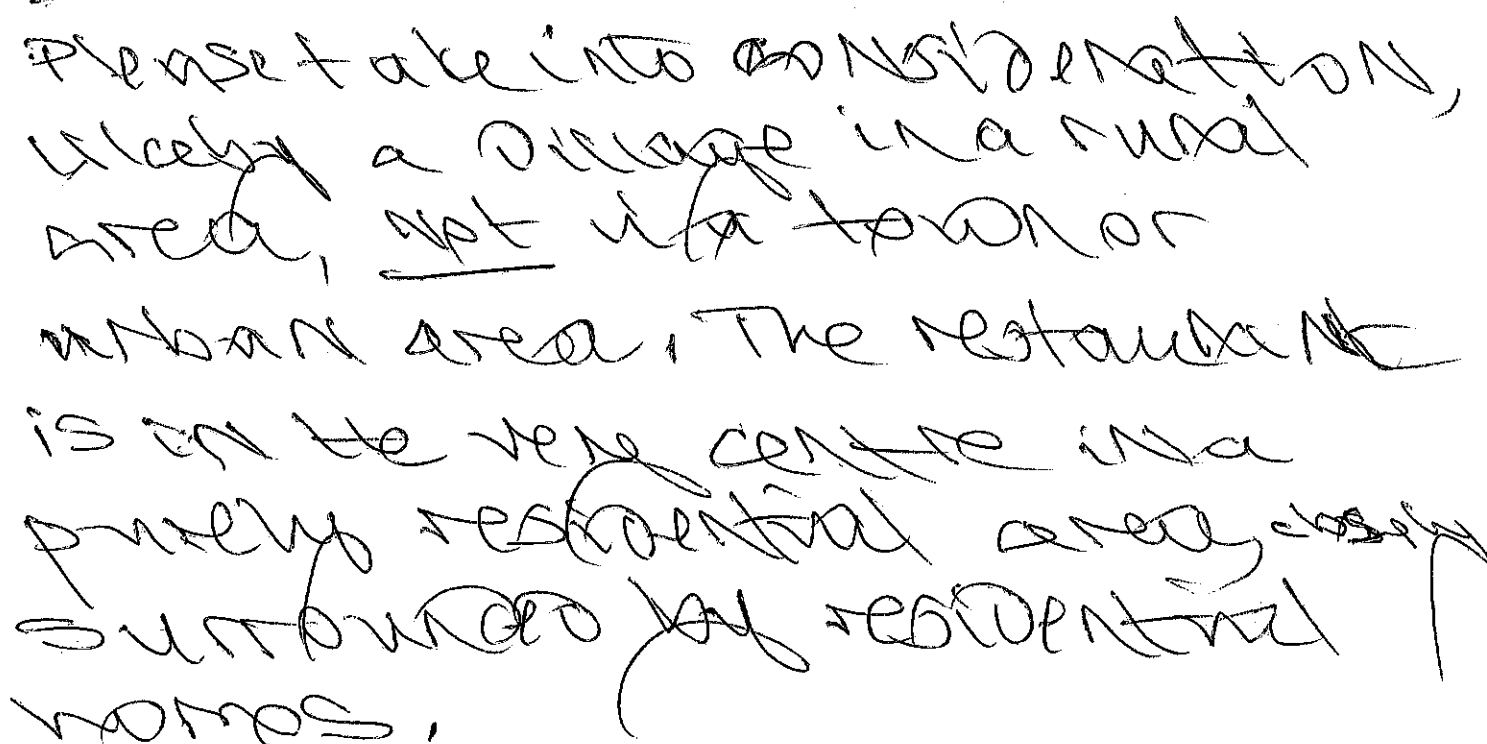 Please take into consideration,
Likely a village in a rural
area, not in a town or
urban area. The restaurant
is in the very centre in a
purely residential area, closely
surrounded by residential
homes.